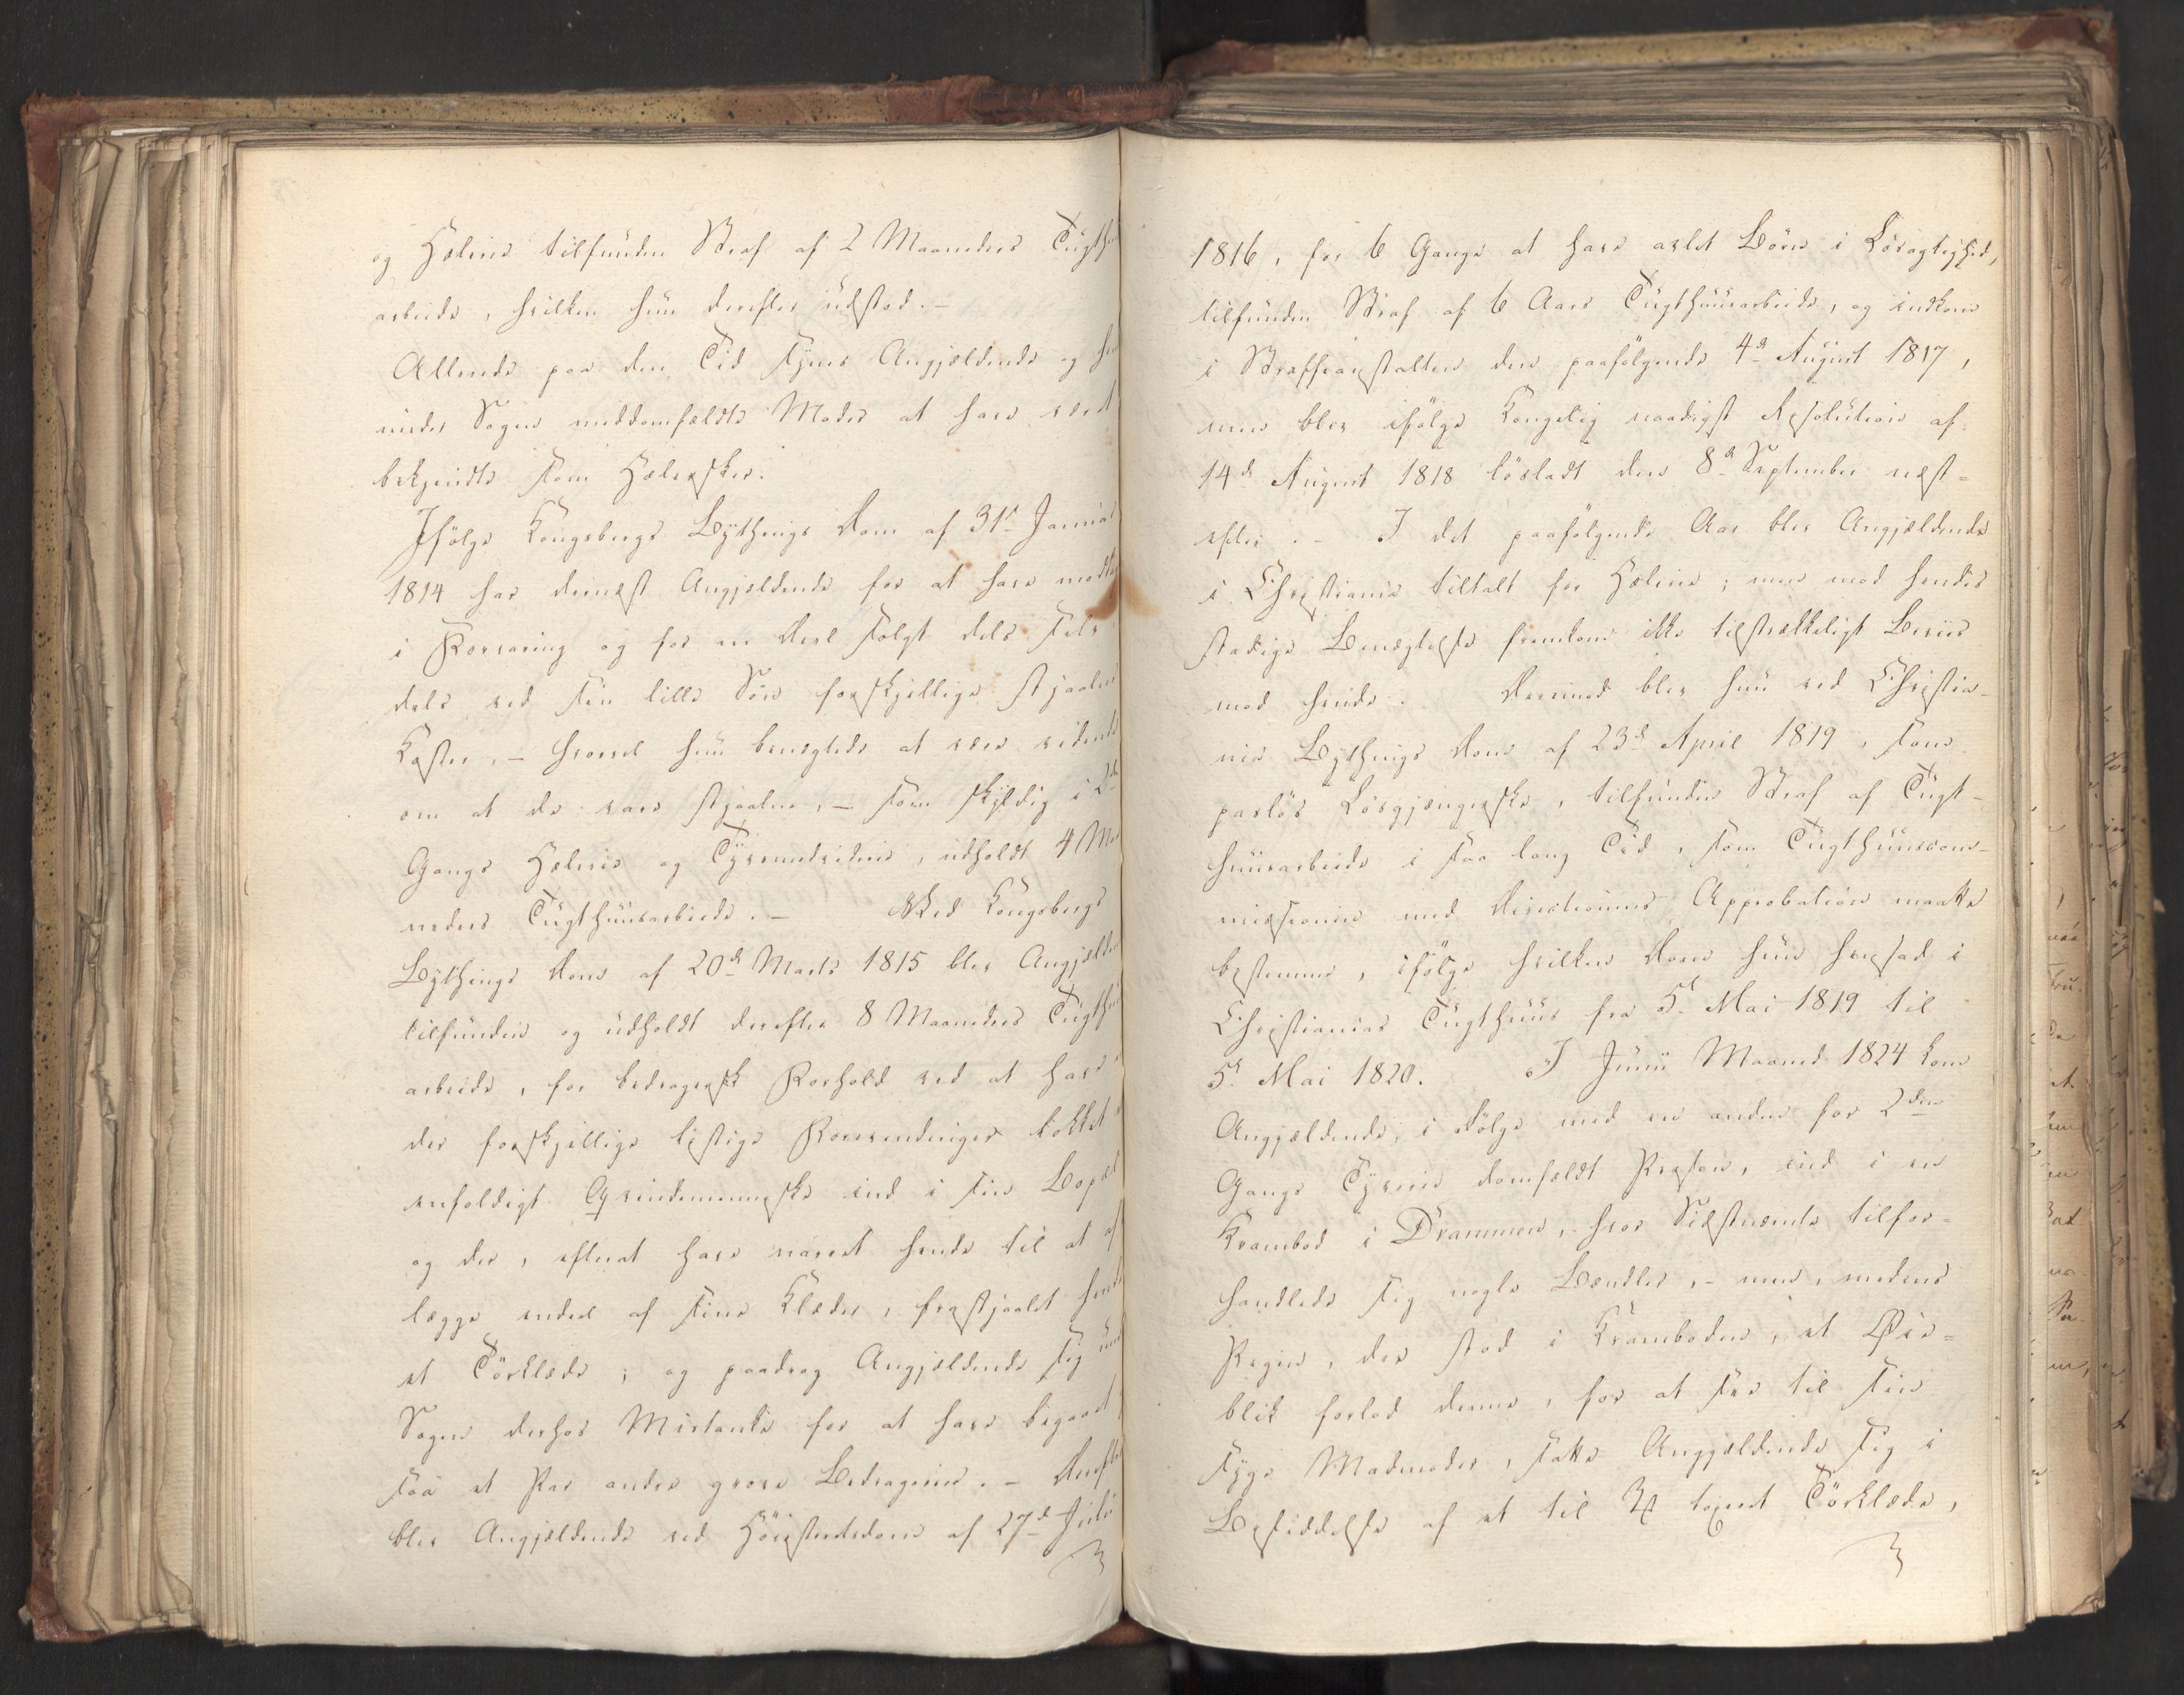 og Hæleri tilfunden Straf af 2 Maaneders Tugthu
arbeide, hvilken hun derefter udstod. –
Allerede paa den Tid synes Angjældende og hen
under Sagen meddomfældte Moder at have været
bekjendte som Hælersker.
Ifølge Kongsbergs Bythings Dom af 31te Januar
1814 har dernæst Angjældende for at have modta
i Forvaring og for en Deel solgt dels selv
dels ved sin lille Søn forskjellige stjaalne
Koster, – hvorvel hun benegtede at være vidende
om at de vare stjaalne, – som skyldig i 2den
Gangs Hæleri og Tyvsmedviden, udholdt 4 Maa
neders Tugthuusarbeide. – Ved Kongsbergs
Bythings Dom af 20de Marts 1815 blev Angjælden
tilfunden og udholdt derefter 8 Maaneders Tugthu
arbeide, for bedragersk Forhold ved at have
der forskjellige listige Foregivender lokket
enfoldigt Qvindemenneske ind i sin Bopæl
og der, efterat have narret hende til at af
lægge endeel af sine Klæder, frastjaalet hende
et Tørklæde; og paadrog Angjældende sig und
Sagen derhos Mistanke for at have begaaet
saa et Par andre grove Bedragerier. – Derefter
blev Angjældende ved Høiesteretsdom af 27de Juli
1816, for 6 Gange at have avlet Børn i Løsagtighed,
tilfunden Straf af 6 Aars Tugthuusarbeide, og indkom
i Straffeanstalten den paafølgende 4de August 1817,
men blev ifølge Kongelig naadigst Resolution af
14de August 1818 løsladt den 8de September næst-
efter. – I det paafølgende Aar blev Angjældende
i Christiania tiltalt for Hæleri; men mod hendes
stadige Benegtelse fremkom ikke tilstrækkeligt Beviis
mod hende. Derimod blev hun ved Christia-
nia Bythings Dom af 23de April 1819, som
pasløs Løsgjængerske, tilfunden Straf af Tugt-
huusarbeide i saa lang Tid, som Tugthuuscom-
missionen med Directionens Approbation maatte
bestemme, ifølge hvilken Dom hun hensad i
Christianias Tugthuus fra 5te Mai 1819 til
5te Mai 1820. I Junii Maaned 1824 kom
Angjældende, i Følge med en anden for 2den
Gangs Tyveri domfældt Person, ind i en
Krambod i Drammen, hvor Sidstnævnte tilfor-
handlede sig nogle Bændler, – men, medens
Pigen, der stod i Kramboden, et Øie-
blik forlod denne, for at see til sin
syge Madmoder, satte Angjældende sig i
Besiddelse af et til taxeret Tørklæde,